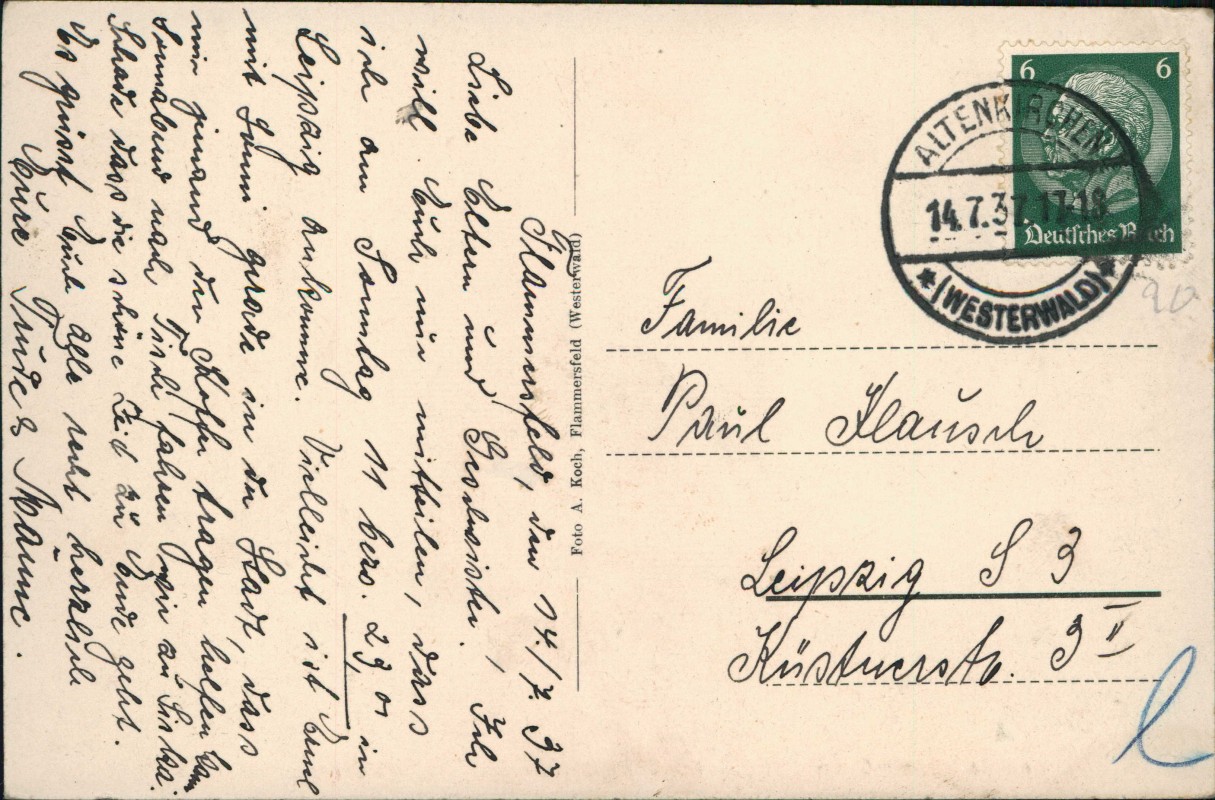 Flammersfeld, den 14./7. 37
Liebe Eltern und Geschwister, Ich
will Euch nur mitteilen, dass
ich am Sonntag 11 bezs. 23,01 in
Leipzig ankomme. Vielleicht ist Eune
mit grade in der Stadt, dass
mir jemand den Koffer tragen helfen kann
Sonnabend nach Tisch fahren wir zu Liska.
Schade dass die schöne Zeit zu Ende geht.
Es grüsst Euch alle recht herzlich
Eure Trude &
Foto A. Koch, Flammersfeld (Westerwald)
6 6
Deutsches Reich
ALTENKIRCHEN
14.7.37.17-18
(WESTERWALD)
20
Familie
Paul Klausch
Leipzig S 3
Küstnerstr. 3 II